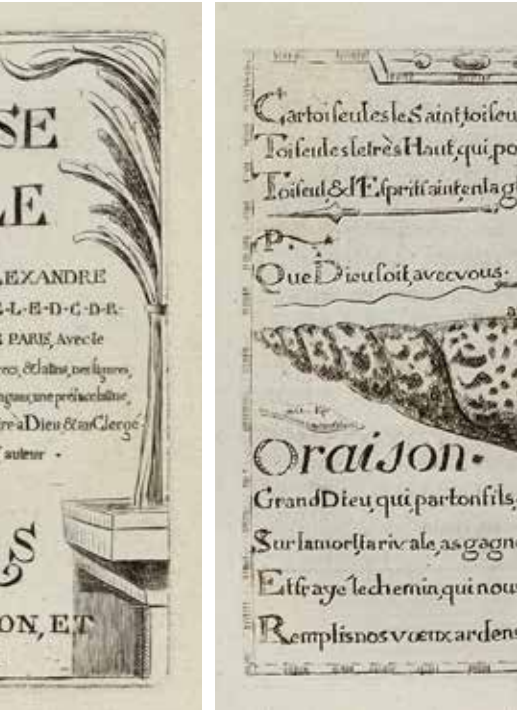 SE
LE
LEXANDRE
E-L-E-D-C-D-R-
E PARIS, Avec le
recs, & latins, nes
une preface
à Dieu & au Clergé.
auteur
S
ON, ET
Car toi seul es le Saint, toi seu
Toi seul es le très Haut, qui, po
Toi seul, & l'Esprit saint, en la g
P.
Que Dieu soit, avec vous.
Oraison.
Grand Dieu, qui, par ton fils,
Sur la mort sa rivale, as gagn
Et fraye le chemin, qui nou
Remplis nos vœux ardens